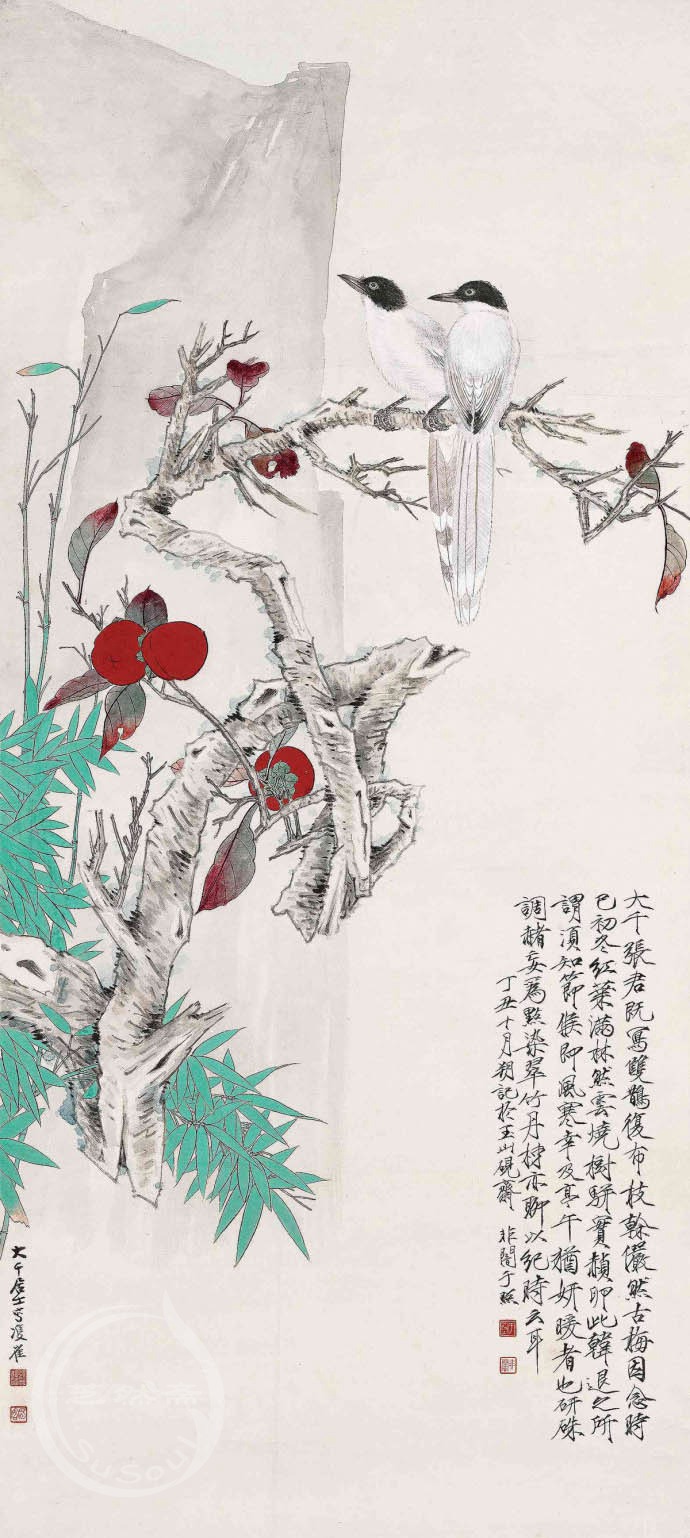 大千張君既寫雙鵲復布枝榦儼然古梅因念時
已初冬紅葉滿林然雲燒樹騈實頳卵此韓退之所
謂須知節候即風寒幸及亭午猶妍暖者也研硃
調赭妄爲點染翠竹丹柿亦聊以紀時云耳
丁丑十月朔記於玉山硯齋 非闇于照
大千居士寫雙雀
SuSoul